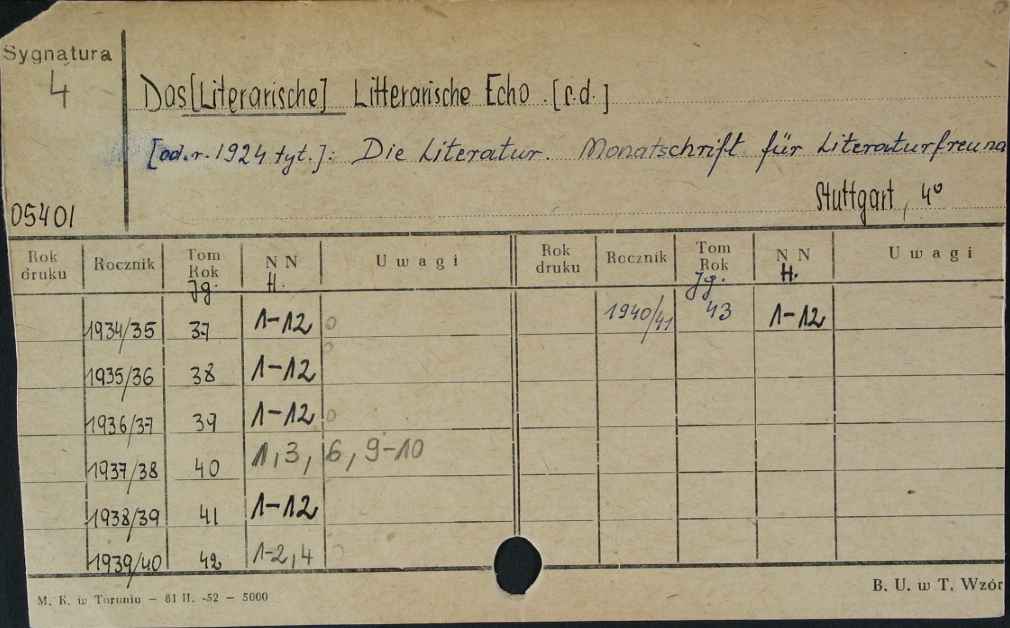 Sygnatura
4
Das [Literarische] Litterarische Echo. [c.d.]
[od. r. 1924 tyt.]: Die Literatur. Monatschrift für Literaturfreund
05401
Stuttgart, 4°
Rok druku Rocznik Tom Rok Jg. NN H. Uwagi Rok druku Rocznik Tom Rok Jg. NN H. Uwagi
1934/35 37 1-12 1940/41 43 1-12
1935/36 38 1-12
1936/37 39 1-12
1937/38 40 1, 3, 6, 9-10
1938/39 41 1-12
1939/40 42 1-2, 4
M. K. w Toruniu — 81 II. -52 — 5000
B. U. w T. Wzór